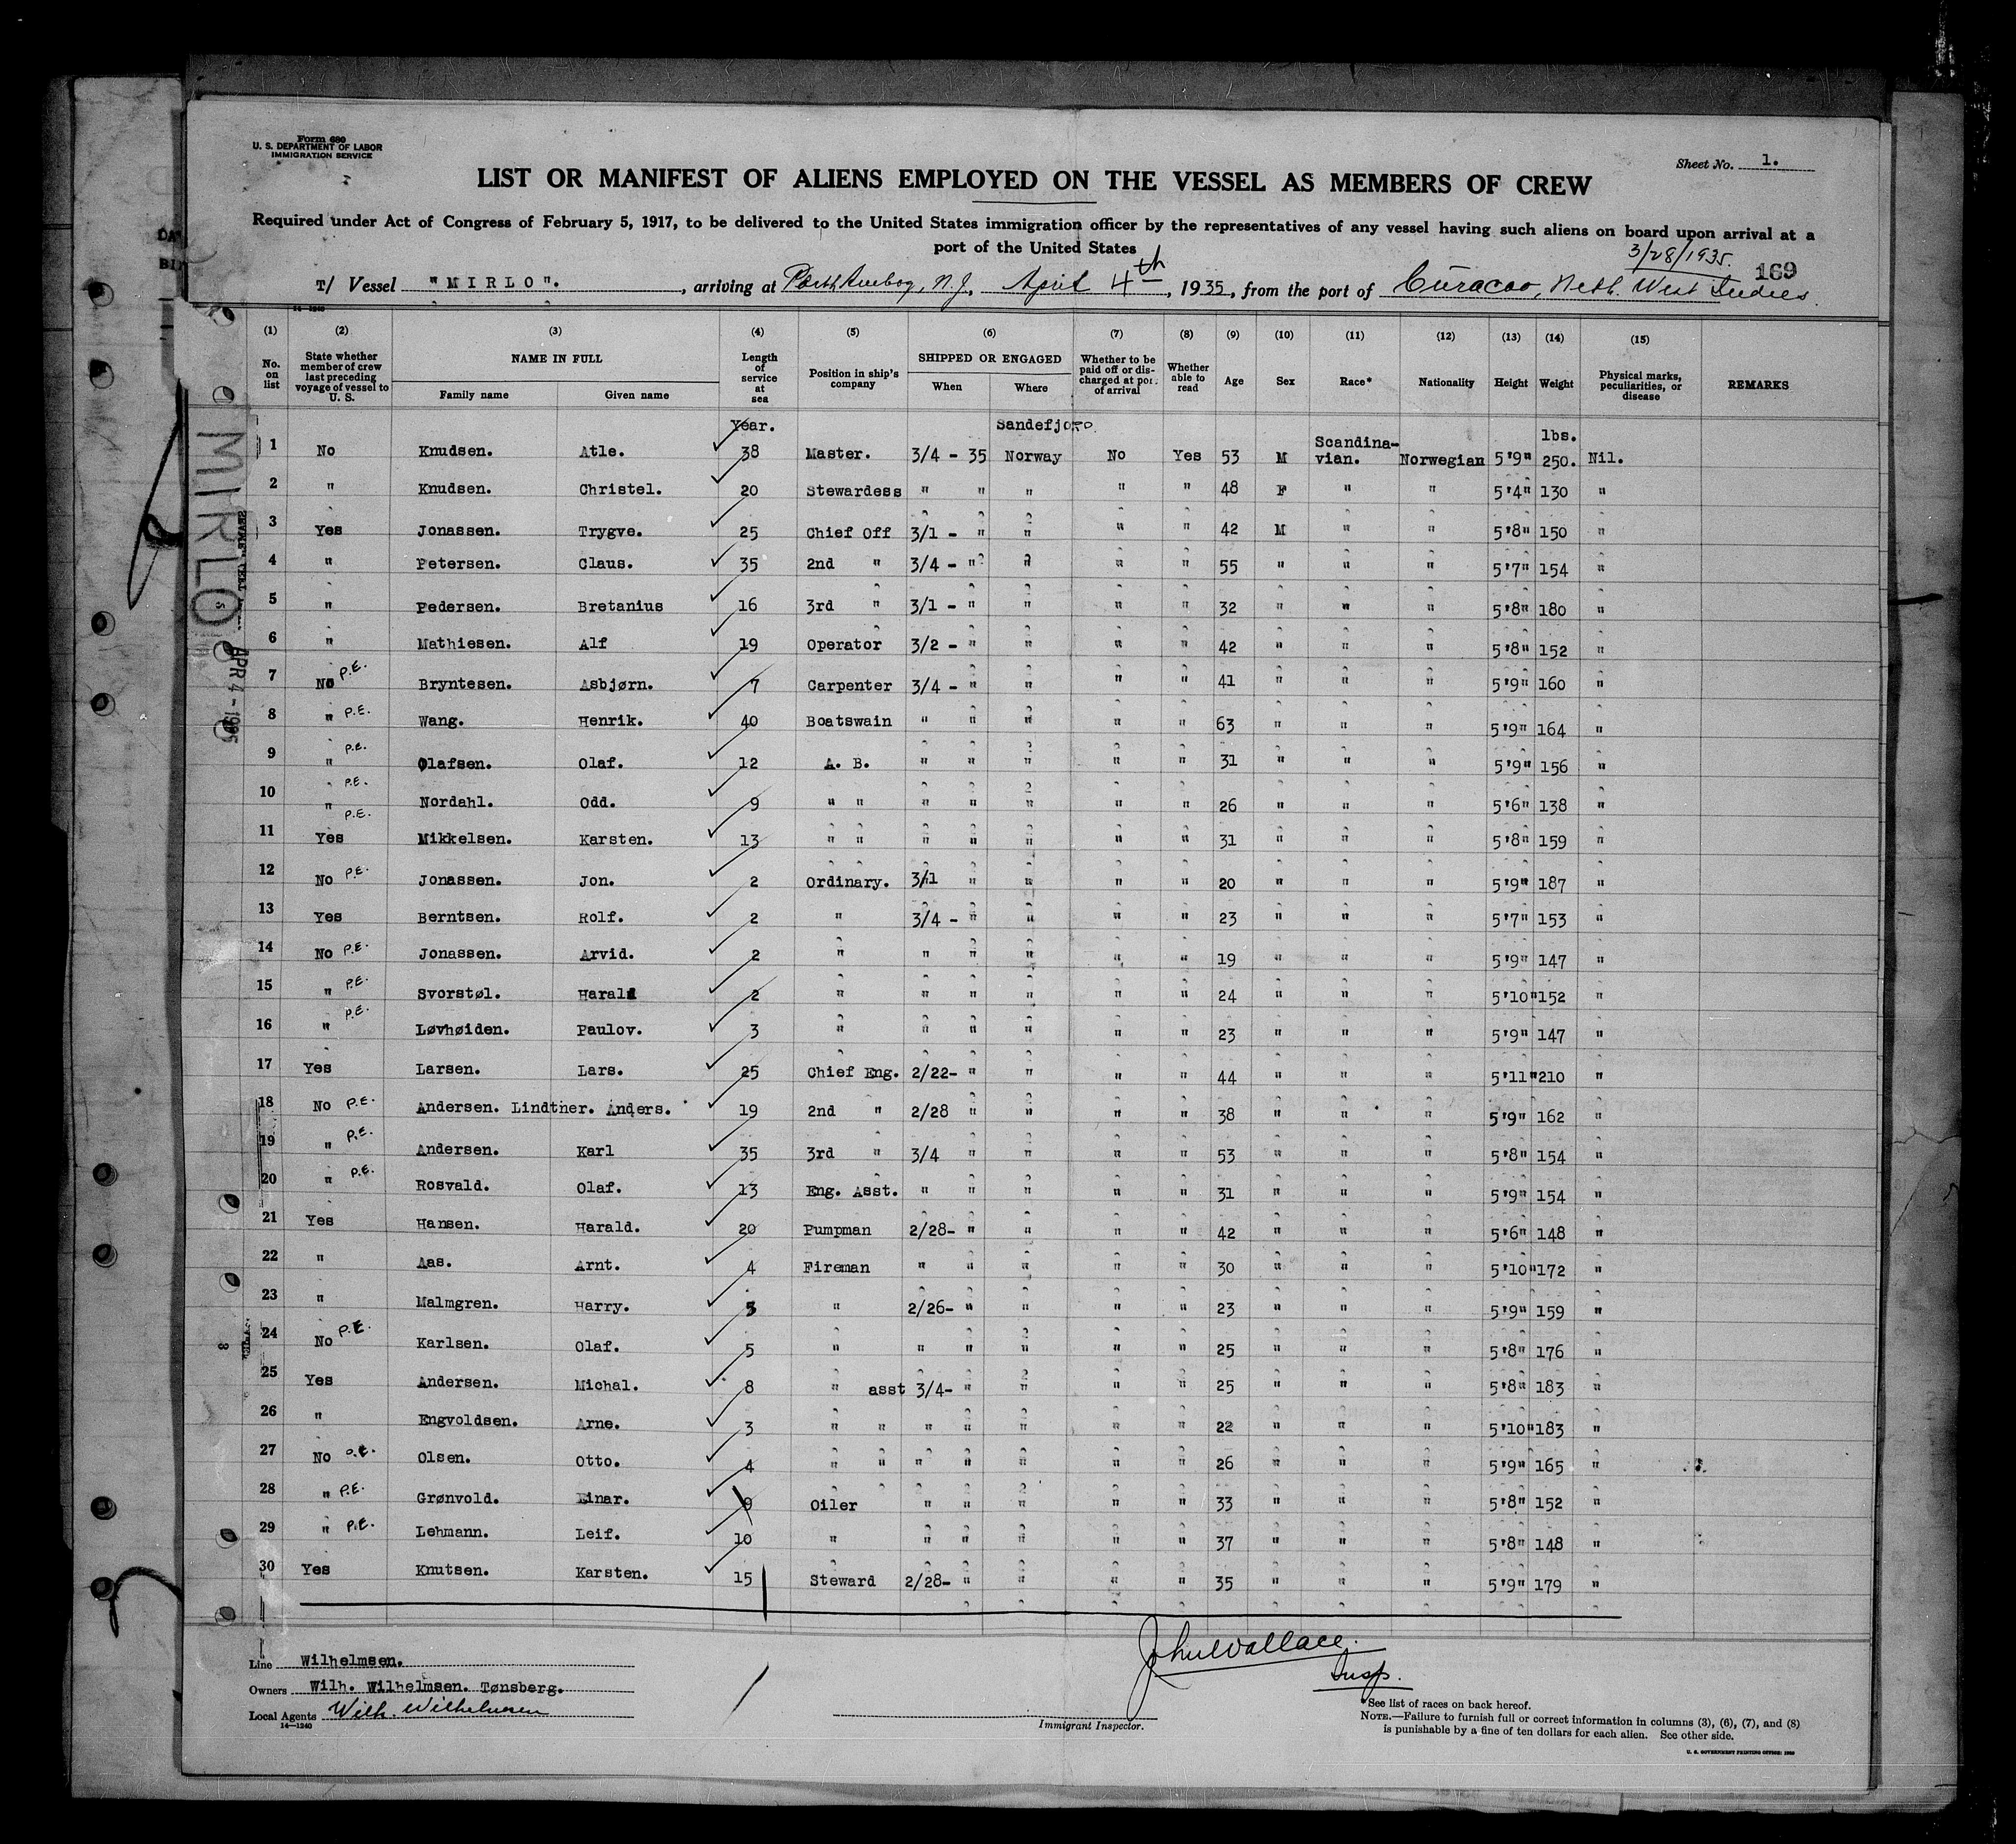 Form 689
U. S. DEPARTMENT OF LABOR
IMMIGRATION SERVICE
Sheet No. 1.
LIST OR MANIFEST OF ALIENS EMPLOYED ON THE VESSEL AS MEMBERS OF CREW
Required under Act of Congress of February 5, 1917, to be delivered to the United States immigration officer by the representatives of any vessel having such aliens on board upon arrival at a
port of the United States
3/28/1935.
169
T/ Vessel "MIRLO"., arriving at Perth Amboy, N.J., April 4th, 1935, from the port of Curacao, Neth. West Indies.
14-1240
(1) (2) (3) (4) (5) (6) (7) (8) (9) (10) (11) (12) (13) (14) (15)
No. on list
State whether member of crew last preceding voyage of vessel to U. S.
NAME IN FULL
Family name
Given name
Length of service at sea
Position in ship's company
SHIPPED OR ENGAGED
When
Where
Whether to be paid off or discharged at port of arrival
Whether able to read
Age
Sex
Race*
Nationality
Height
Weight
Physical marks, peculiarities, or disease
REMARKS
Year. Sandefjord lbs.
1 No Knudsen. Atle. 38 Master. 3/4 - 35 Norway No Yes 53 M Scandina-vian. Norwegian 5'9" 250. Nil.
2 " Knudsen. Christel. 20 Stewardess " " " " " 48 F " " 5'4" 130 "
3 Yes Jonassen. Trygve. 25 Chief Off 3/1 - " " " " 42 M " " 5'8" 150 "
4 " Petersen. Claus. 35 2nd " 3/4 - " " " " 55 " " " 5'7" 154 "
5 " Pedersen. Bretanius 16 3rd " 3/1 - " " " " 32 " " " 5'8" 180 "
6 " Mathiesen. Alf 19 Operator 3/2 - " " " " 42 " " " 5'8" 152 "
7 No P.E. Bryntesen. Asbjørn. 7 Carpenter 3/4 - " " " " 41 " " " 5'9" 160 "
8 " P.E. Wang. Henrik. 40 Boatswain " " " " " 63 " " " 5'9" 164 "
9 " P.E. Olafsen. Olaf. 12 A. B. " " " " " 31 " " " 5'9" 156 "
10 " P.E. Nordahl. Odd. 9 " " " " " " " 26 " " " 5'6" 138 "
11 Yes P.E. Mikkelsen. Karsten. 13 " " " " " " " 31 " " " 5'8" 159 "
12 No P.E. Jonassen. Jon. 2 Ordinary. 3/1 " " " " 20 " " " 5'9" 187 "
13 Yes Berntsen. Rolf. 2 " 3/4 - " " " " 23 " " " 5'7" 153 "
14 No P.E. Jonassen. Arvid. 2 " " " " " " 19 " " " 5'9" 147 "
15 " P.E. Svorstøl. Harald 2 " " " " " " 24 " " " 5'10" 152 "
16 " P.E. Løvhøiden. Paulov. 3 " " " " " " 23 " " " 5'9" 147 "
17 Yes Larsen. Lars. 25 Chief Eng. 2/22- " " " " 44 " " " 5'11" 210 "
18 No P.E. Andersen. Lindtner. Anders. 19 2nd " 2/28 " " " " 38 " " " 5'9" 162 "
19 " P.E. Andersen. Karl 35 3rd " 3/4 " " " " 53 " " " 5'8" 154 "
20 " P.E. Rosvald. Olaf. 13 Eng. Asst. " " " " " 31 " " " 5'9" 154 "
21 Yes Hansen. Harald. 20 Pumpman 2/28- " " " " 42 " " " 5'6" 148 "
22 " Aas. Arnt. 4 Fireman " " " " " 30 " " " 5'10" 172 "
23 " Malmgren. Harry. 5 " 2/26- " " " " 23 " " " 5'9" 159 "
24 No P.E. Karlsen. Olaf. 5 " " " " " " 25 " " " 5'8" 176 "
25 Yes Andersen. Michal. 8 " asst 3/4- " " " " 25 " " " 5'8" 183 "
26 " Engvoldsen. Arne. 3 " " " " " " " 22 " " " 5'10" 183 "
27 No P.E. Olsen. Otto. 4 " " " " " " " 26 " " " 5'9" 165 "
28 " P.E. Grønvold. Einar. 9 Oiler " " " " " 33 " " " 5'8" 152 "
29 " P.E. Lehmann. Leif. 10 " " " " " " 37 " " " 5'8" 148 "
30 Yes Knutsen. Karsten. 15 Steward 2/28- " " " " 35 " " " 5'9" 179 "
MIRLO
APR 4 - 1935
Line Wilhelmsen.
Owners Wilh. Wilhelmsen. Tønsberg.
Local Agents Wilh. Wilhelmsen
14-1240
John Wallace.
Insp.
Immigrant Inspector.
*See list of races on back hereof.
NOTE.—Failure to furnish full or correct information in columns (3), (6), (7), and (8)
is punishable by a fine of ten dollars for each alien. See other side.
U. S. GOVERNMENT PRINTING OFFICE: